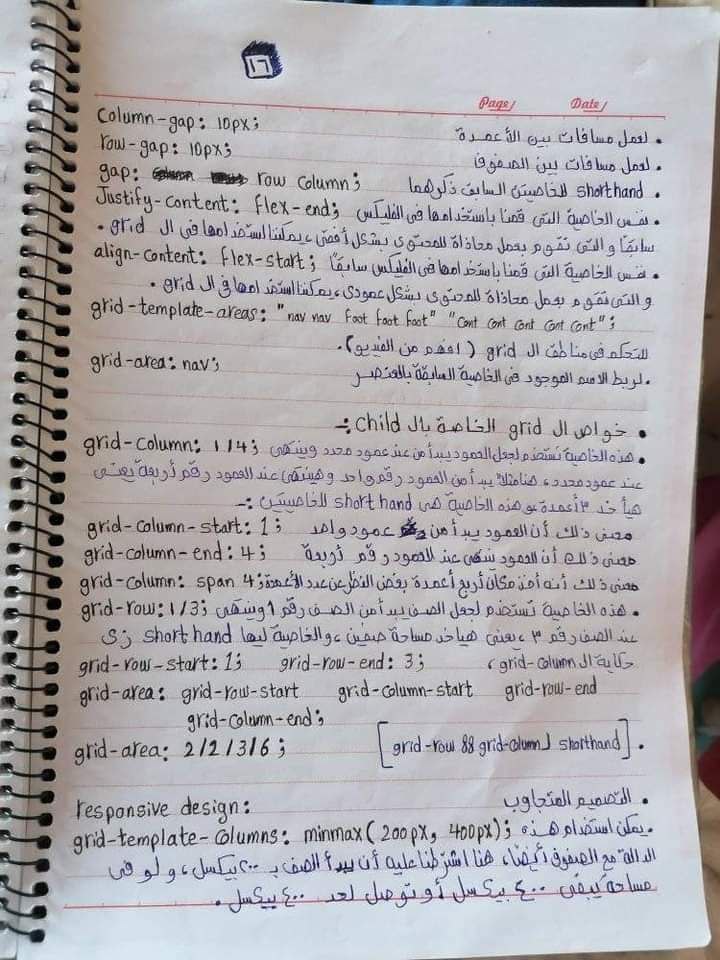 ١٦
Page/ Date/
column-gap: 10px; . لعمل مسافات بين الأعمدة
row-gap: 10px; . لعمل مسافات بين الصفوف
gap: row column; . shorthand للخاصيتين السابق ذكرهما
Justify-content: flex-end; . نفس الخاصية التي قمنا باستخدامها في الفليكس
سابقاً والتي تقوم بعمل محاذاة للمحتوى بشكل أفقي، يمكننا استخدامها في ال grid.
align-content: flex-start; . نفس الخاصية التي قمنا باستخدامها في الفليكس سابقاً
والتي تقوم بعمل محاذاة للمحتوى بشكل عمودي، يمكننا استخدامها في ال grid.
grid-template-areas: "nav nav foot foot foot" "cont cont cont cont cont";
للتحكم في مناطق ال grid (افهم من الفيديو).
grid-area: nav; . لربط الاسم الموجود في الخاصية السابقة بالعنصر
. خواص ال grid الخاصة بال child :-
grid-column: 1/4; . هذه الخاصية تستخدم لجعل العمود يبدأ من عند عمود محدد وينتهي
عند عمود محدد، هنا مثلا يبدأ من العمود رقم واحد وهينتهي عند العمود رقم أربعة يعني
هيأخد ٣ أعمدة وهذه الخاصية هي shorthand للخاصيتين :-
grid-column-start: 1; معنى ذلك أن العمود يبدأ من عمود واحد
grid-column-end: 4; معنى ذلك أن العمود ينتهي عند العمود رقم أربعة
grid-column: span 4; معنى ذلك أنه أخذ مكان أربع أعمدة بغض النظر عن عدد الأعمدة
grid-row: 1/3; . هذه الخاصية تستخدم لجعل الصف يبدأ من الصف رقم 1 وينتهي
عند الصف رقم ٣، يعني هياخد مساحة صفين، والخاصية ليها shorthand زي
grid-row-start: 1; grid-row-end: 3; حكاية ال grid-column،
grid-area: grid-row-start grid-column-start grid-row-end
grid-column-end;
grid-area: 2/2/3/6; . [shorthand ل grid-row && grid-column]
responsive design: . التصميم المتجاوب
grid-template-columns: minmax(200px, 400px); . يمكن استخدام هذه
الدالة مع الصفوف أيضًا، هنا اشترطنا عليه أن يبدأ الصف بـ ٢٠٠ بيكسل، ولو في
مساحة يبقى ٤٠٠ بيكسل أو توصل لحد ٤٠٠ بيكسل.